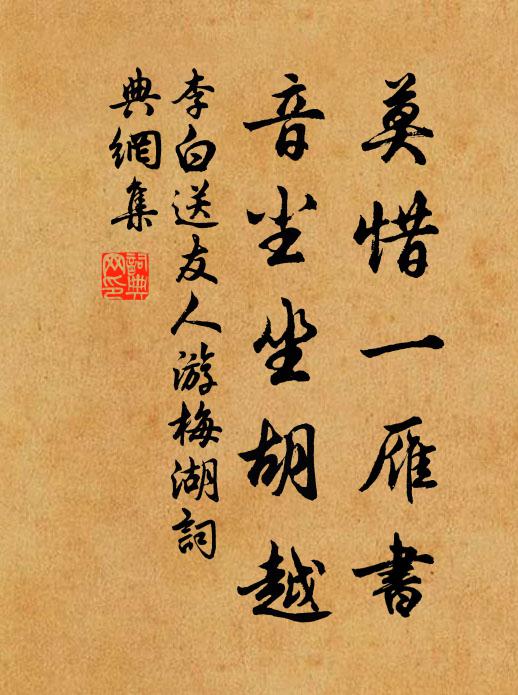 莫惜一雁書
音尘坐胡越
李白送友人游梅湖詞
典網集
詞典
网印